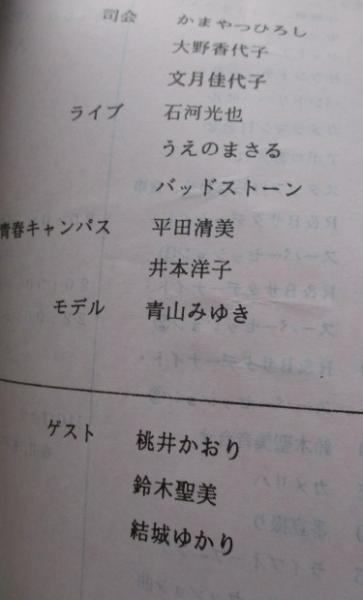 司会 かまやつひろし
大野香代子
文月佳代子
ライブ 石河光也
うえのまさる
バッドストーン
青春キャンパス 平田清美
井本洋子
モデル 青山みゆき
ゲスト 桃井かおり
鈴木聖美
結城ゆかり